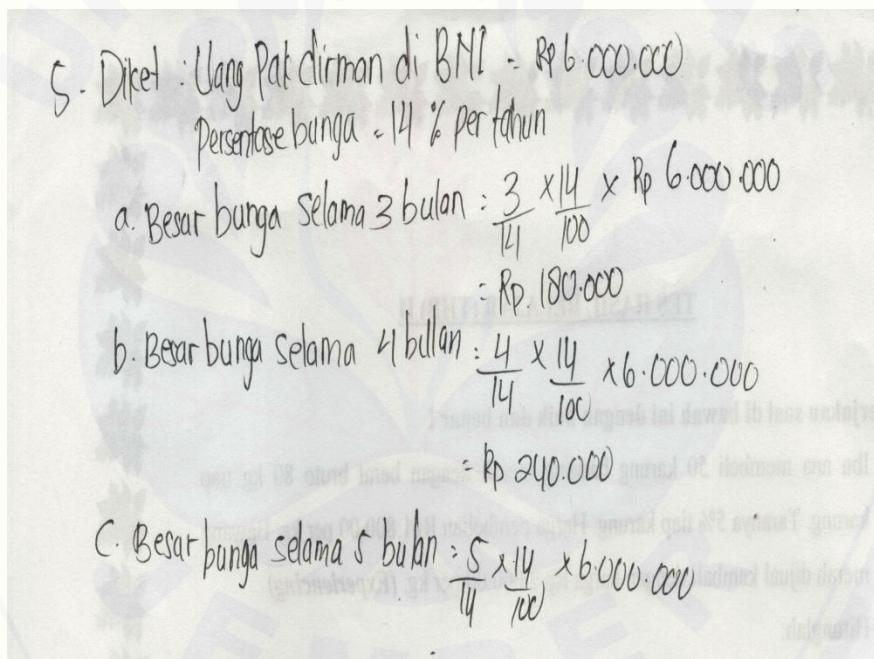 5. Diket : Uang Pak dirman di BNI = Rp 6.000.000
Persentase bunga = 14 % per tahun
a. Besar bunga selama 3 bulan = 3/14 × 14/100 × Rp 6.000.000
= Rp. 180.000
b. Besar bunga selama 4 bulan = 4/14 × 14/100 × 6.000.000
= Rp 240.000
C. Besar bunga selama 5 bulan = 5/14 × 14/100 × 6.000.000